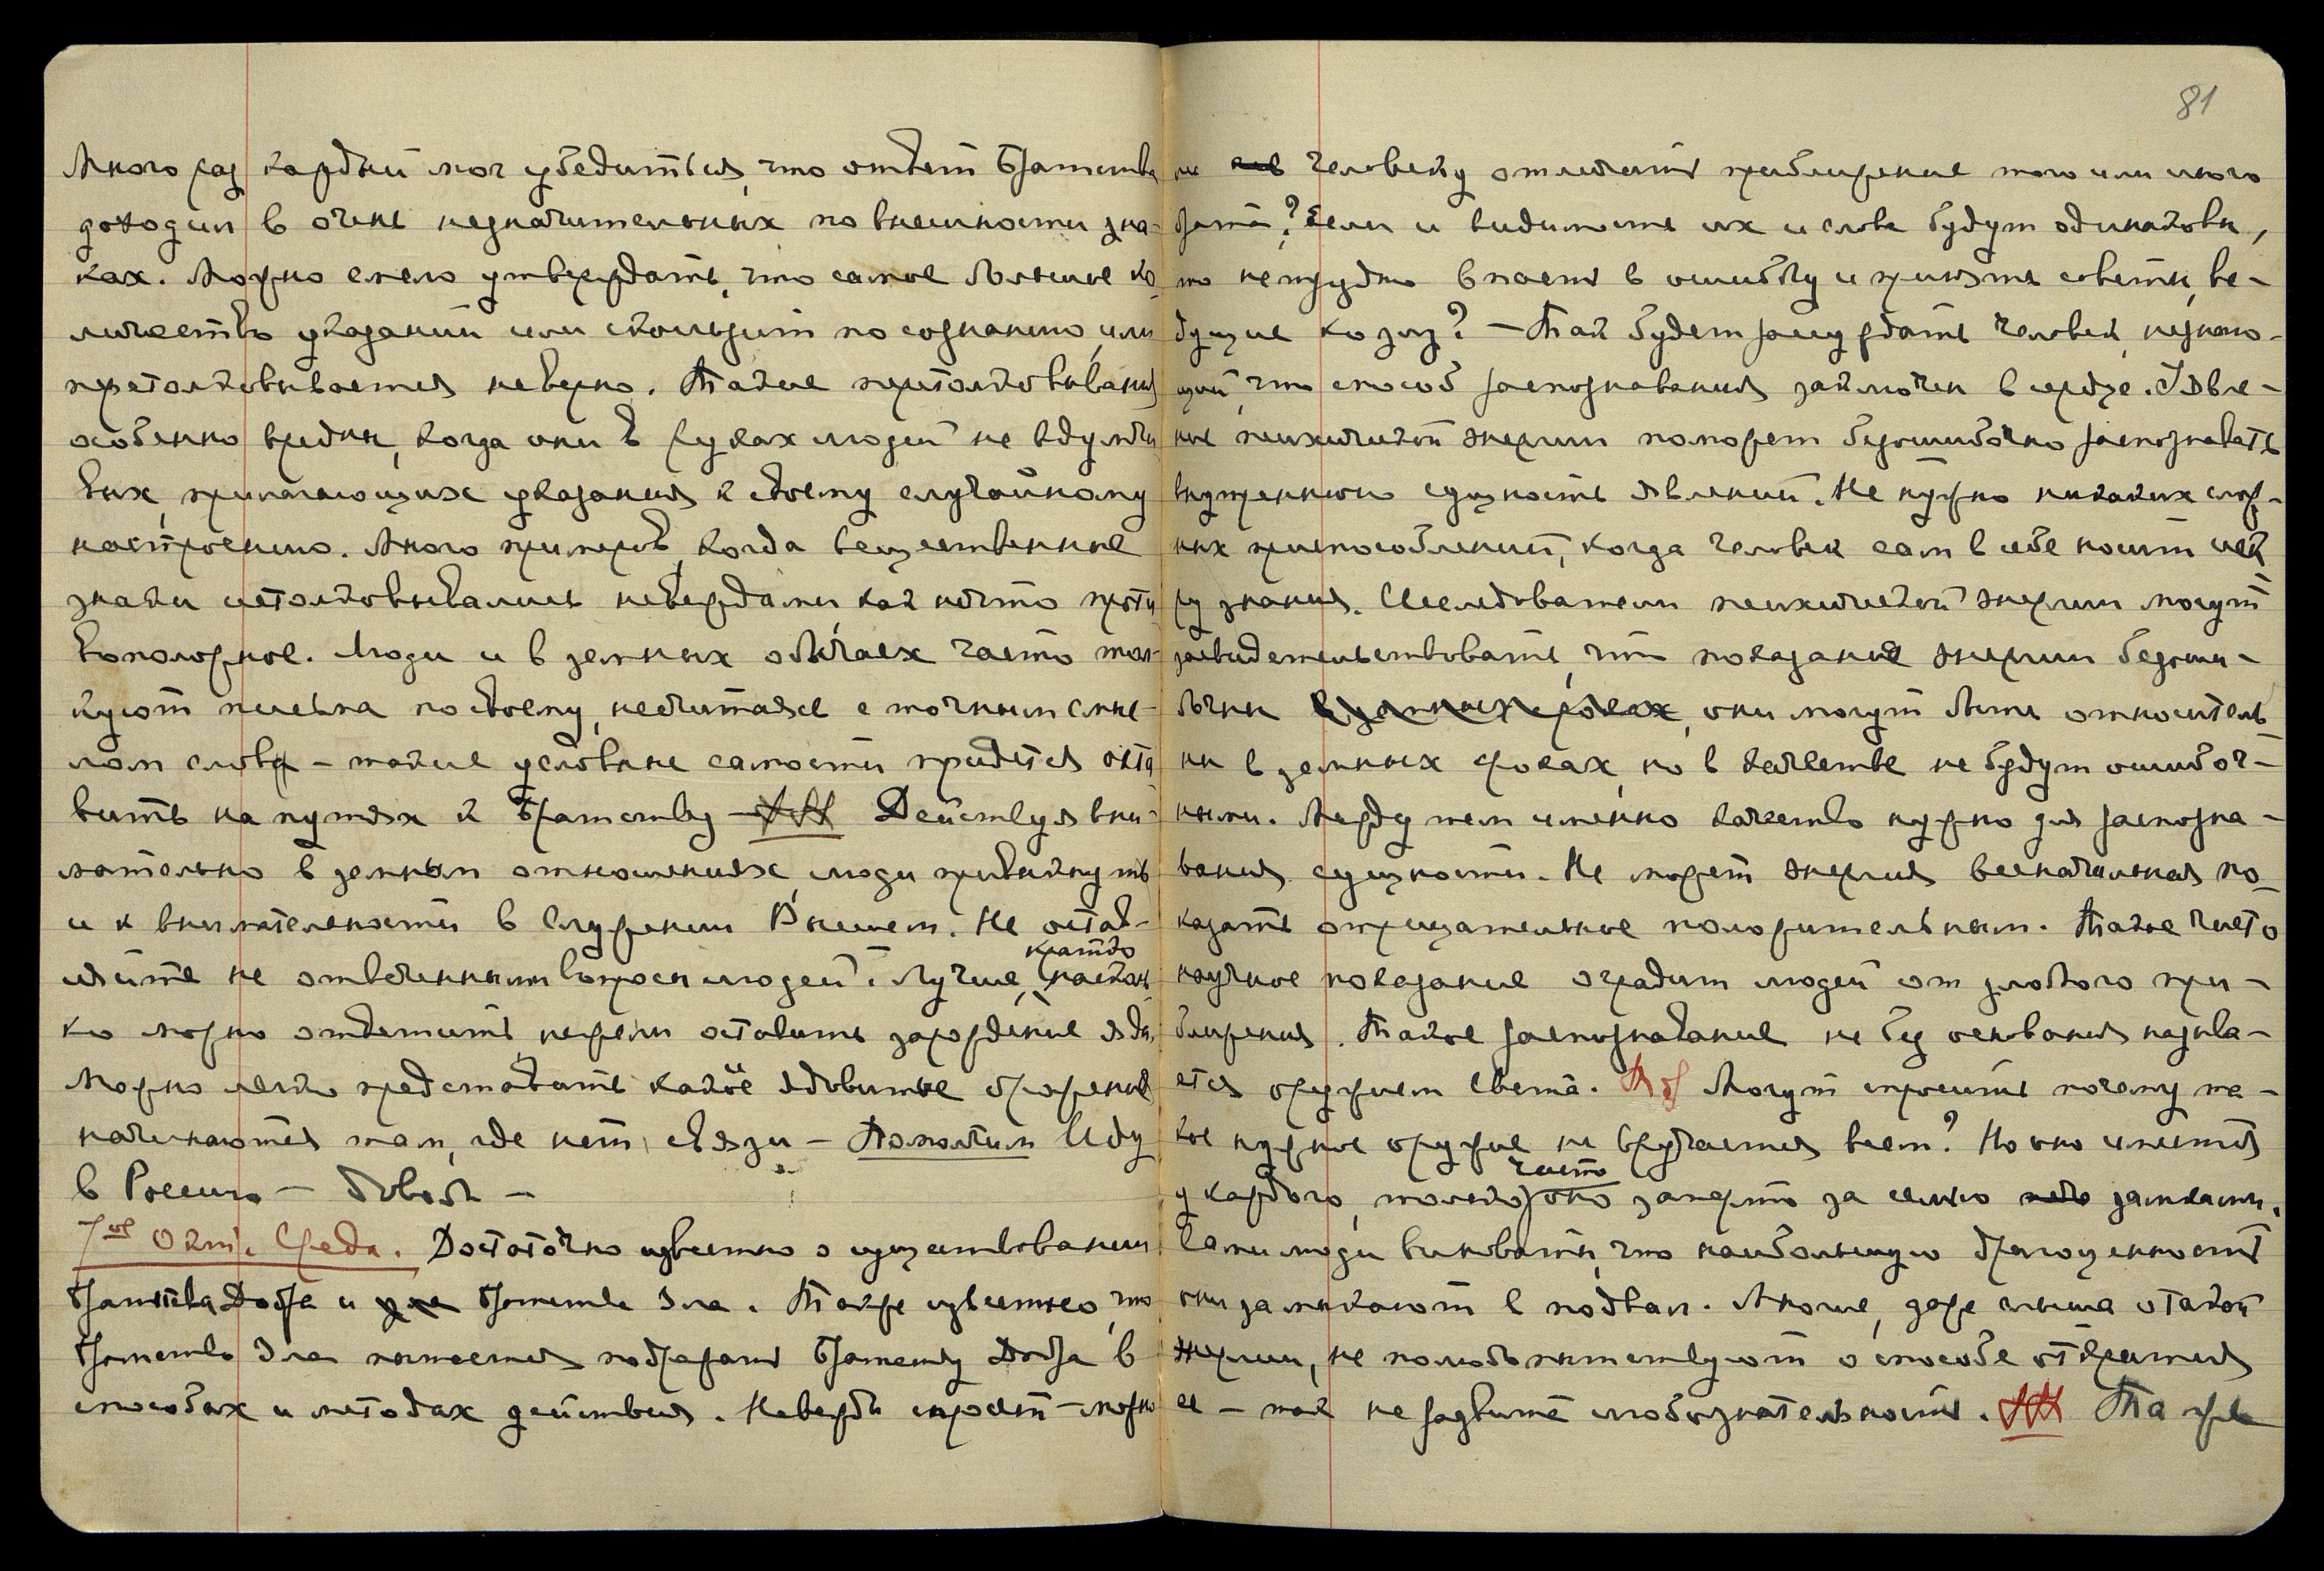 Много раз каждый мог убедиться, что ответ Братства
доходил в очень незначительных по внешности зна-
ках. Можно смело утверждать, что самое большое ко-
личество указаний или скользит по сознанию, или
претолковывается неверно. Такие претолкования
особенно вредны, когда они в руках людей не вдумчи
вых, прилагающих указания к своему случайному
настроению. Много примеров, когда вещественные
знаки истолковывались невеждами как нечто проти
воположное. Люди и в земных обычаях часто тол-
куют письма по своему, несчитаясь с точным смыс-
лом слова – такие условные самости придется оста
вить на путях к Братству – Действуя вни-
мательно в земным отношениях, люди привыкнуть
и к внимательности в Служении Высшем. Не остав-
ляйте не отвеченными вопросы людей. Лучше, кратко насколь
ко можно ответить нежели оставить зарождение яда.
Можно легко представить какое ядовитое брожение
начинаются там, где нет связи – Помолчим Иду
в Россию – Довольно –
7ое Окт. Среда. Достаточно известно о существовании
Братства Добра и Братства Зла. Также известно, что
Братство Зла пытается подражать Братству Добра в
способах и методах действия. Невежда спросит – можно
81
не человеку отличить приближение того или иного
брата? Если и видимость их и слова будут одинаковы,
то нетрудно впасть в ошибку и принять советы, ве-
дущие ко злу? – Так будет рассуждать человек, незнаю-
щий, что способ распознавания заключен в сердце. Явле-
ние психической энергии поможет безошибочно распознавать
внутреннюю сущность явлений. Не нужно никаких слож-
ных приспособлений, когда человек сам в себе носит иск
ру знания. Исследователи психической энергии могут
засвидетельствовать, что показание энергии безоши-
бочны в земных сроках, они могут быть относитель
ны в земных сроках, но в качестве не будут ошибоч-
ными. Между тем именно качество нужно для распозна-
вания сущности. Не может энергия всеначальная по-
казать отрицательное положительным. Такое чисто
научное показание оградит людей от злобного при-
ближения. Такое распознавание не без основания называ-
ется оружием Света. Могут спросить почему та-
кое нужное оружие не вручается всем? Но оно имеется
у каждого, только часто оно заперто за семью замками.
Сами люди виноваты, что наибольшую драгоценность
они замыкают в подвал. Многие, даже слыша о такой
энергии, не полюбопытствуют о способе открытия
ее – так не развита любознательность. Та же